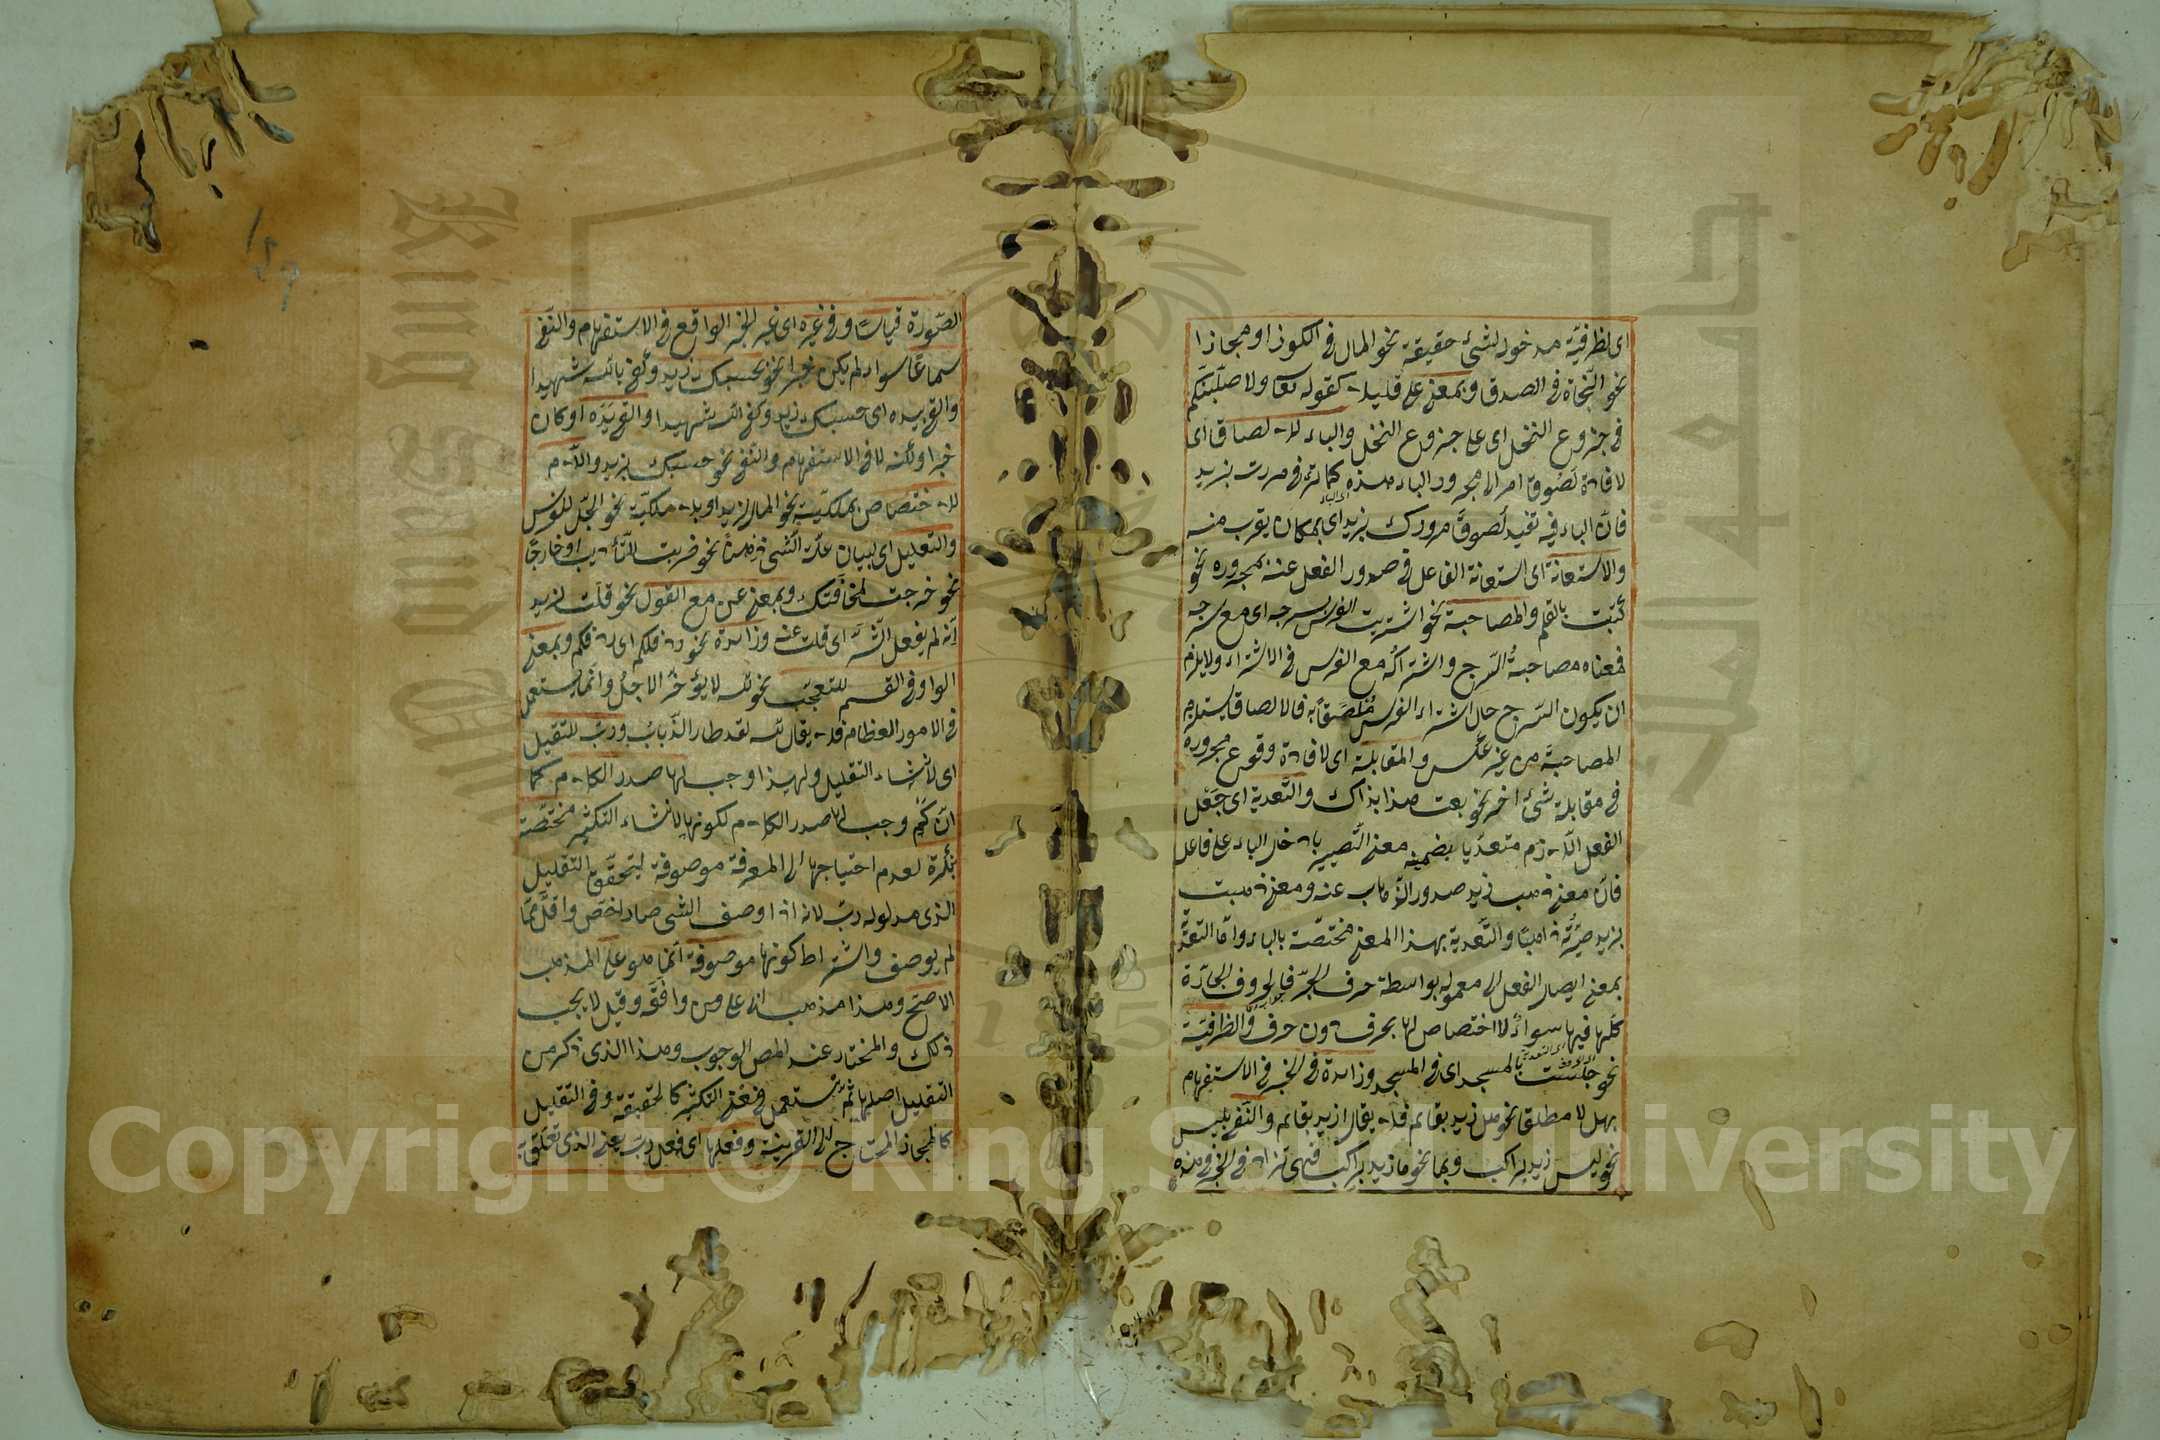 اى لظرفيّة مدخوله لشئ حقيقة نحو المال فى الكوز او مجازا
نحو النّجاة فى الصدق وبمعنى على قليلا كقوله تعا ولا صلّبنّكم
فى جزوع النخل اى على جزوع النخل والباء للالصاق اى
لافادة لصوق امر الى مجرور الباء هذه كما ترى فى مررت بزيد
فانّ الباء فيه تفيد لصوق مرورك بزيد اى بمكان يقرب منه
والاستعانة اى استعانة الفاعل فى صدور الفعل عنه بمجروره نحو
كتبت بالقلم والمصاحبة نحو اشتريت الفرس بسرجه اى مع سرجه
فمعناه مصاحبة السّرج واشتراكه مع الفرس فى الاشتراء ولا يلزم
ان يكون السّرج حال اشتراء الفرس ملصقًا به فالالصاق يستلزم
المصاحبة من غير عكس والمقابلة اى لافادة وقوع مجروره
فى مقابلة شئ اخر نحو بعت هذا بذاك والتّعدية اى جعل
الفعل اللازم متعدّيا بتضمينه معنى التّصيير بادخال الباء على فاعله
فانّ معنى ذهب زيد صدور الذّهاب عنه ومعنى ذهبت
بزيد صيّرته ذاهبًا والتّعدية بهذا المعنى مختصّة بالباء وامّا التعدية
بمعنى ايصال الفعل الى معموله بواسطة حرف الجرّ فالحروف الجارّة
كلّها فيها سواء لا اختصاص لها بحرف دون حرف والظرفيّة
نحو جلست بالمسجد اى فى المسجد وزائدة فى الخبر فى الاستفهام
بهل لا مطلقا نحو هل زيد بقائم فلا يقال ازيد بقائم والنّفى بليس
نحو ليس زيد براكب وبما نحو ما زيد براكب فهى تزاد فى الخبر فى هذه
الصّورة قياسًا وفى غيره اى غير الخبر الواقع فى الاستفهام والنّفى
سماعًا سواء لم يكن خبرا نحو بحسبك زيد وكفى بالله شهيدا
والقى بيده اى حسبك زيد وكفى الله شهيدا والقى يده او كان
خبرا ولكنه لا فى الاستفهام والنّفى نحو حسبك بزيد واللام
للاختصاص بملكيّة نحو المال لزيد او بلا ملكيّة نحو الجلّ للفرس
والتعليل اى لبيان علّة الشئ ذهنًا نحو ضربت للتّأديب او خارجًا
نحو خرجت لمخافتك وبمعنى عن مع القول نحو قلت لزيد
انّه لم يفعل الشّر اى قلت عنه وزائدة نحو ردف لكم اى ردفكم وبمعنى
الواو فى القسم للتعجّب نحو لله لا يؤخّر الاجل وانّما يستعمل
فى الامور العظام فلا يقال لله لقد طار الذّباب وربّ للتقليل
اى لانشاء التقليل ولهذا وجب لها صدر الكلام كما
انّ كم وجب لها صدر الكلام لكونها لانشاء التكثير مختصّة
بنكرة لعدم احتياجها الى المعرفة موصوفة ليتحقّق التقليل
الذى مدلول ربّ لانه اذا وصف الشئ صار اخصّ واقلّ ممّا
لم يوصف واشتراط كونها موصوفة انّما هو على المذهب
الاصحّ وهذا مذهب ابى على ومن وافقه وقيل لا يجب
ذلك والمختار عند المص الوجوب وهذا الذى ذكر من
التقليل اصلها ثمّ تستعمل فى معنى التكثير كالحقيقة وفى التقليل
كالمجاز المحتاج الى القرينة وفعلها اى فعل ربّ يعنى الذى تعلّق به
Copyright © King Saud University
King Saud University
1957